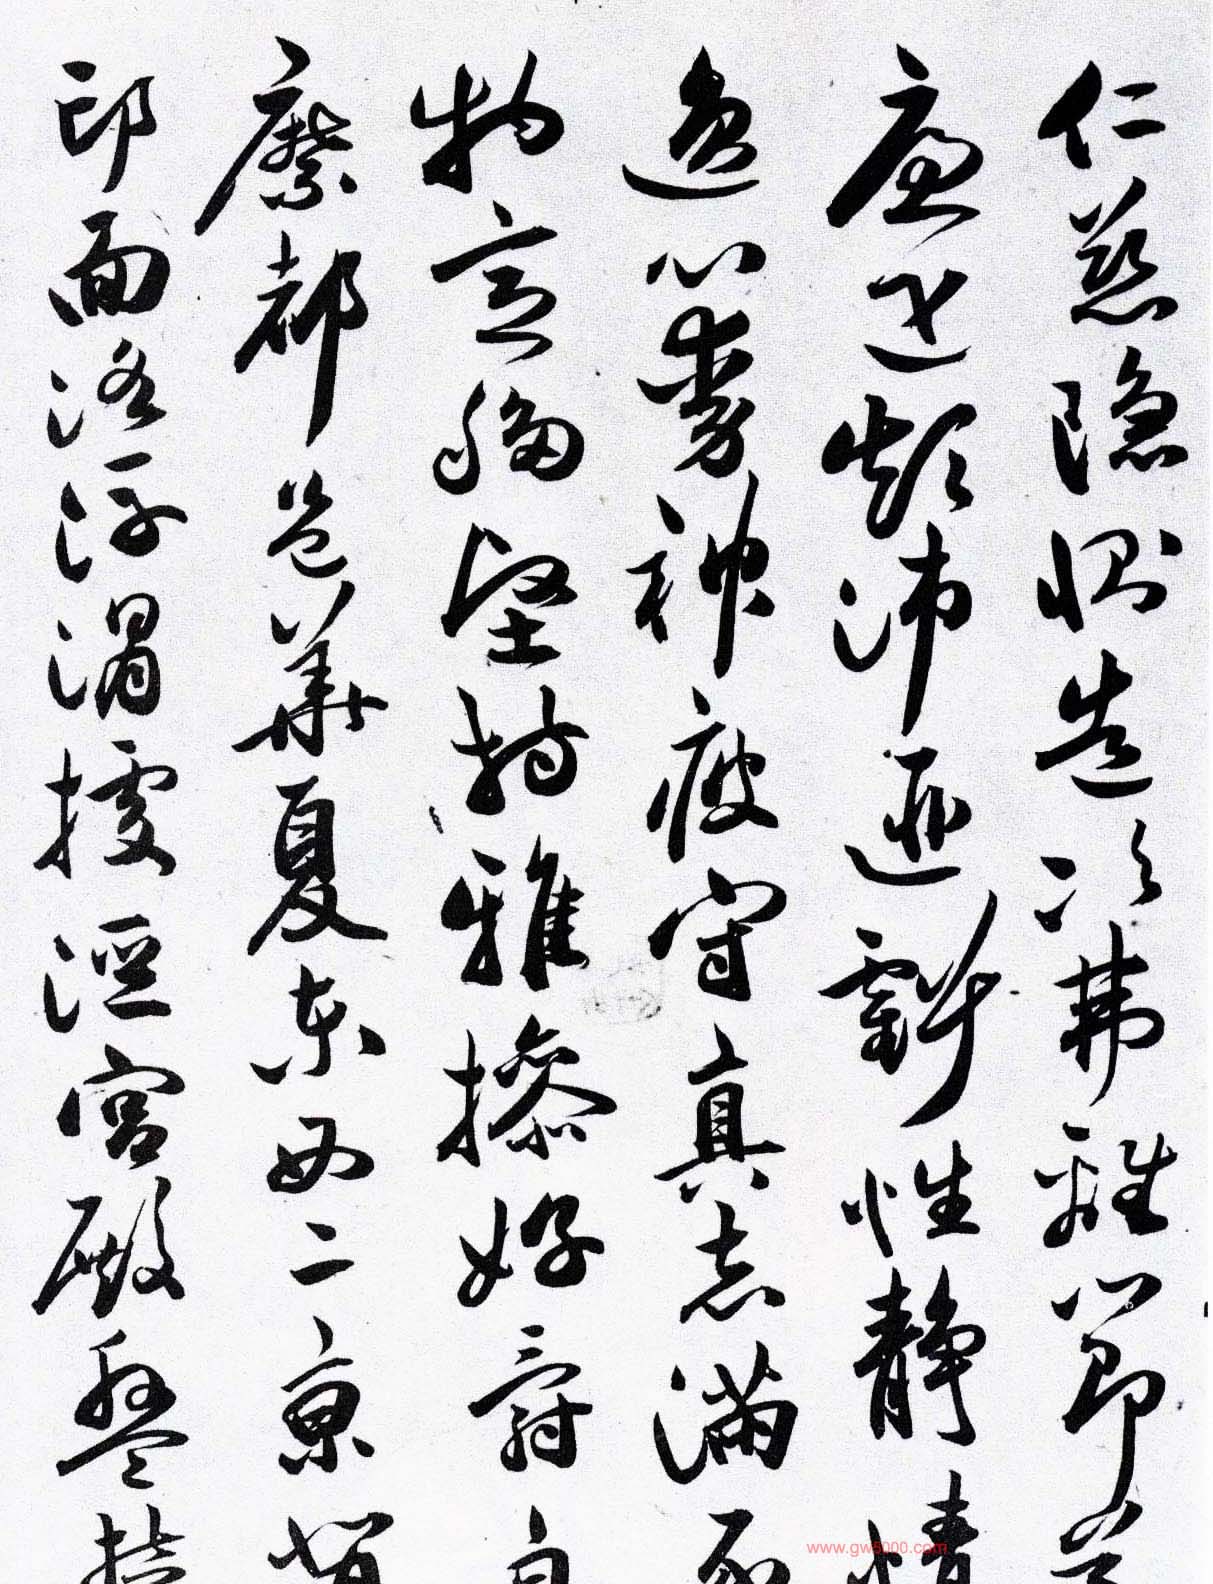 仁慈隐恻造次弗離節義
廉退顛沛匪虧性静情
逸心動神疲守真志滿逐
物意移堅持雅操好爵自
縻都邑華夏東西二京背
邙面洛浮渭據涇宮殿盤
www.gw5000.com